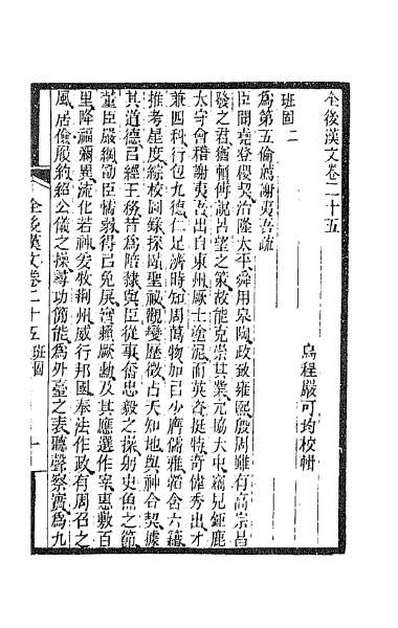 全後漢文卷二十五
烏程嚴可均校輯
班固二
爲第五倫薦謝夷吾疏
臣聞堯登稷契治隆太平舜用皋陶政致雍熙殷周雖有高宗昌
發之君猶賴傅說呂望之策故能克崇其業允協大中竊見鉅鹿
太守會稽謝夷吾出自東州厥土塗泥而英姿挺特奇偉秀出才
兼四科行包九德仁足濟時知周萬物加已少膺儒雅韜含六籍
推考星度綜校圖錄探賾聖祕觀變歷徵占天知地與神合契據
其道德已經王務昔爲陪隸與臣從事奮忠毅之操躬史魚之節
董臣嚴綱勖臣懦弱得已免戾實賴厥勳及其應選作宰惠敷百
里降福彌異流化若神爰牧荆州威行邦國奉法作政有周召之
風居儉履約紹公儀之操尋功簡能爲外臺之表聽聲察實爲九
全後漢文卷二十五 班固 一